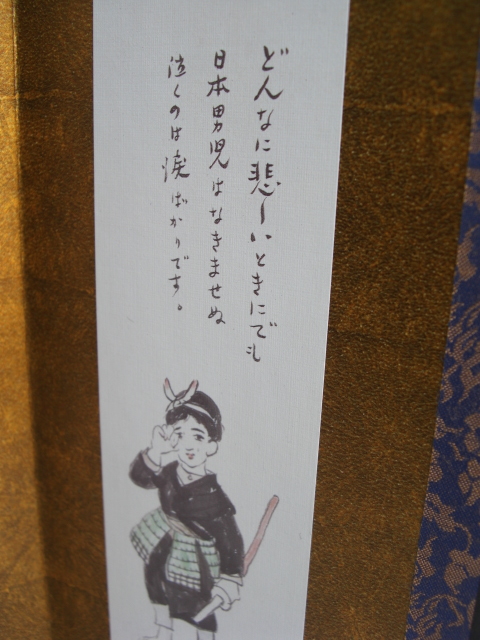 どんなに悲しいときにでも
日本男児はなきませぬ
泣くのは涙ばかりです。